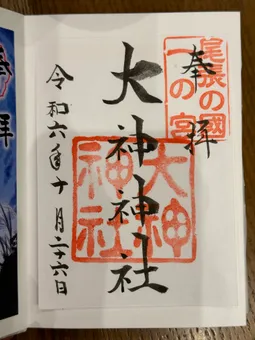 奉拝
尾張の國
一の宮
大神神社
大神
神社
令和六年十月二十六日
拝